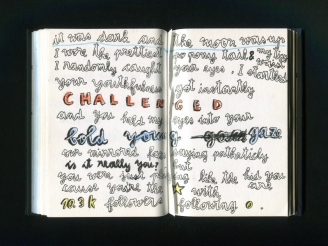 it was dark and the moon was up
I wore the prettiest pony tail & my
I randomly caught your eyes. I startled
your youthfulness got instantly
CHALLENGED
and you held my eyes into your
bold young gaze
our mirrored
is it really you?
you were just like the kid you
cause you're the with
10.3 k followers following 0.